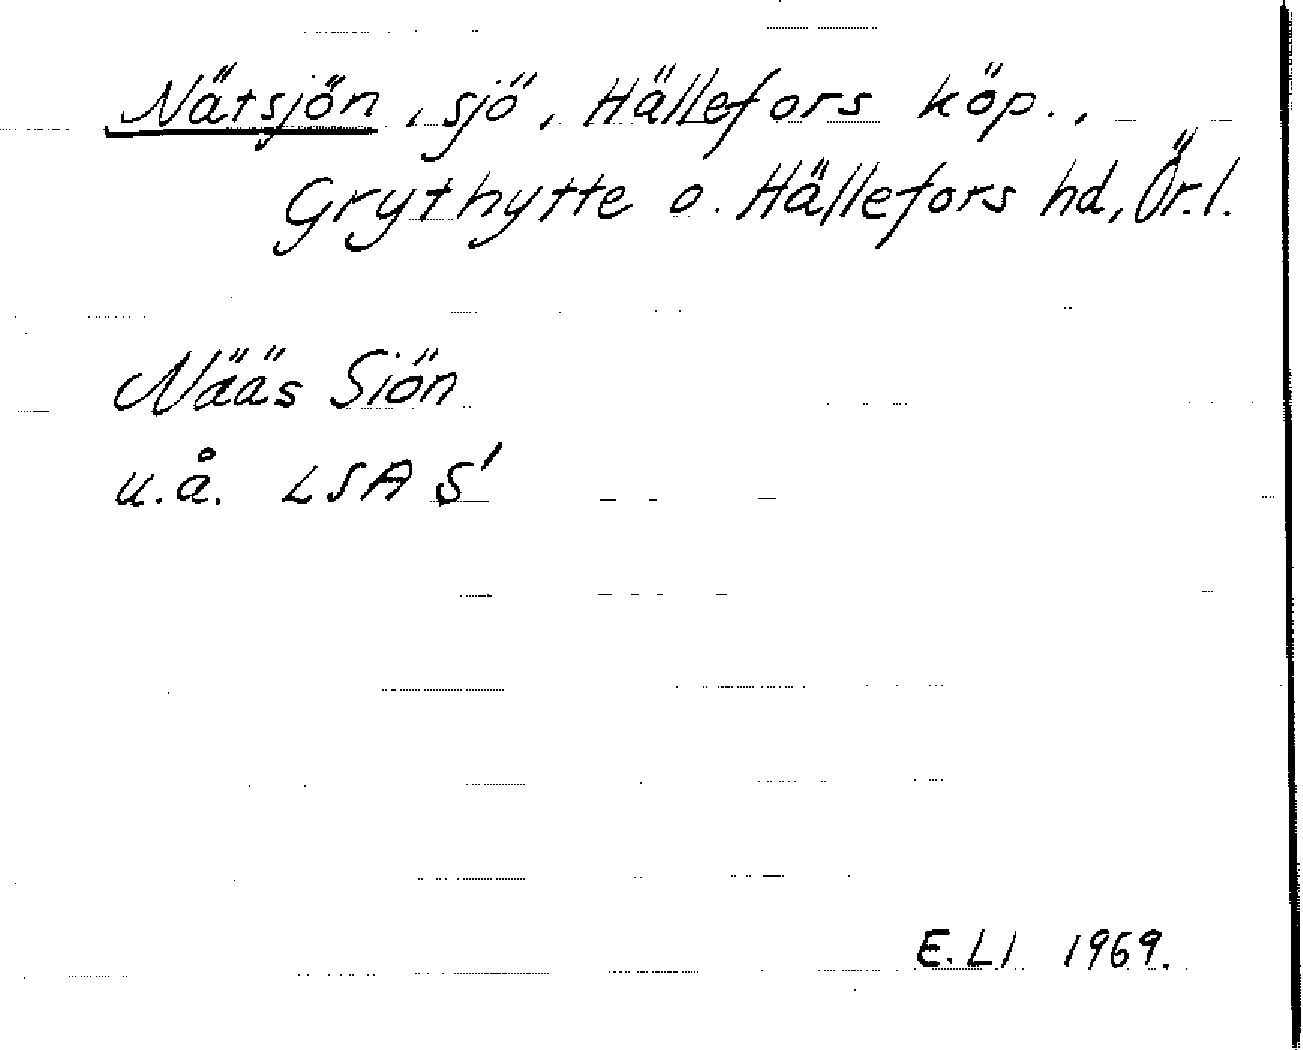 Nätsjön, sjö, Hällefors köp.,
Grythytte o. Hällefors hd, Ör.l.
Nääs Siön
u.å. LSA S'
E.Ll 1969.